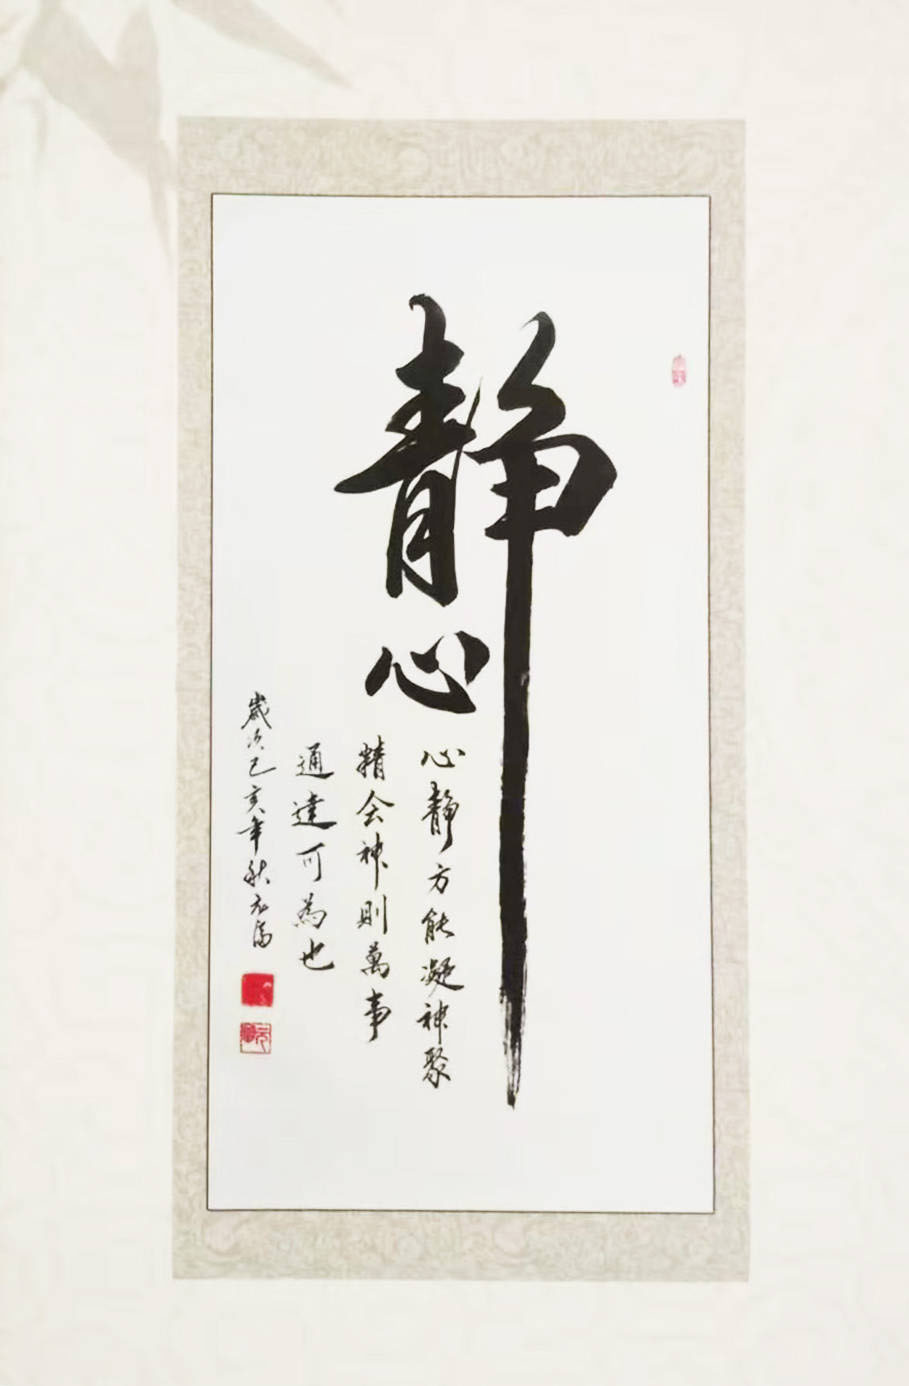 静心
心静方能凝神聚
精会神则萬事
通達可為也
歲次己亥年秋元滿